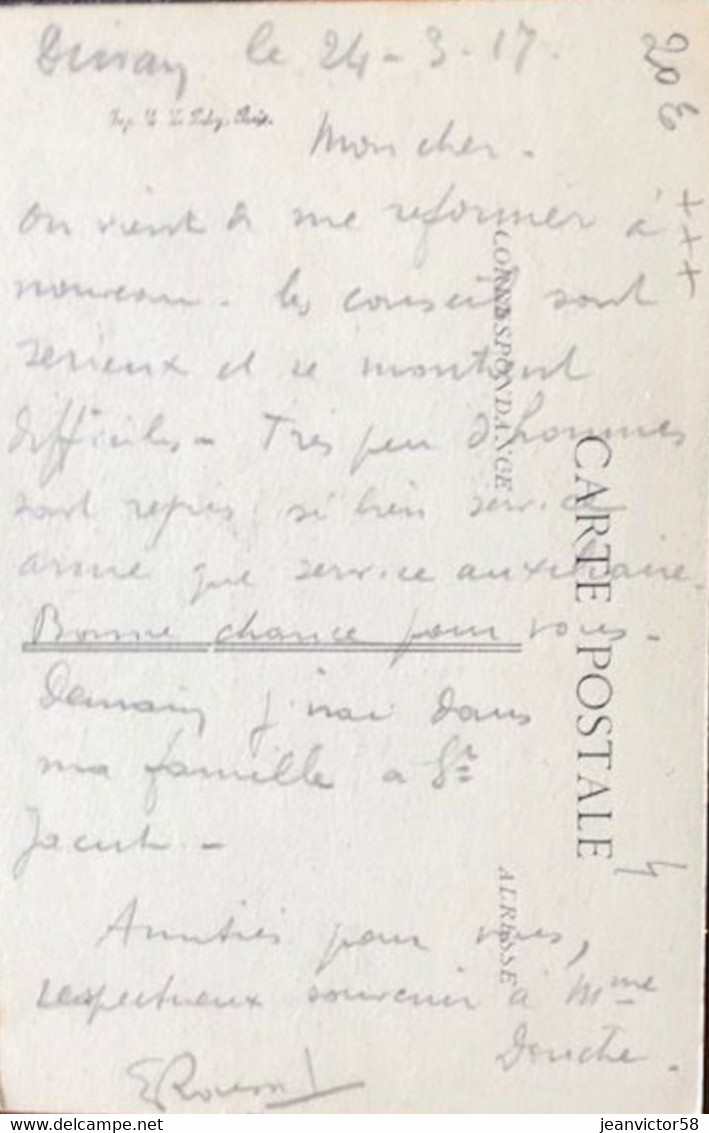 Dinan le 24-3-17.
20 €
+++
Mon cher.
On vient de me reformer à
nouveau. les conseils sont
serieux et se montrent
difficiles - Très peu d'hommes
sont repris si bien service
armé que service auxiliaire.
Bonne chance pour vous -
Demain j'irai dans
ma famille a St
Jacut. -
Amitiés pour vous,
respectueux souvenir à Mme
Douche.
CORRESPONDANCE
CARTE POSTALE
ADRESSE
delcampe.net
jeanvictor58